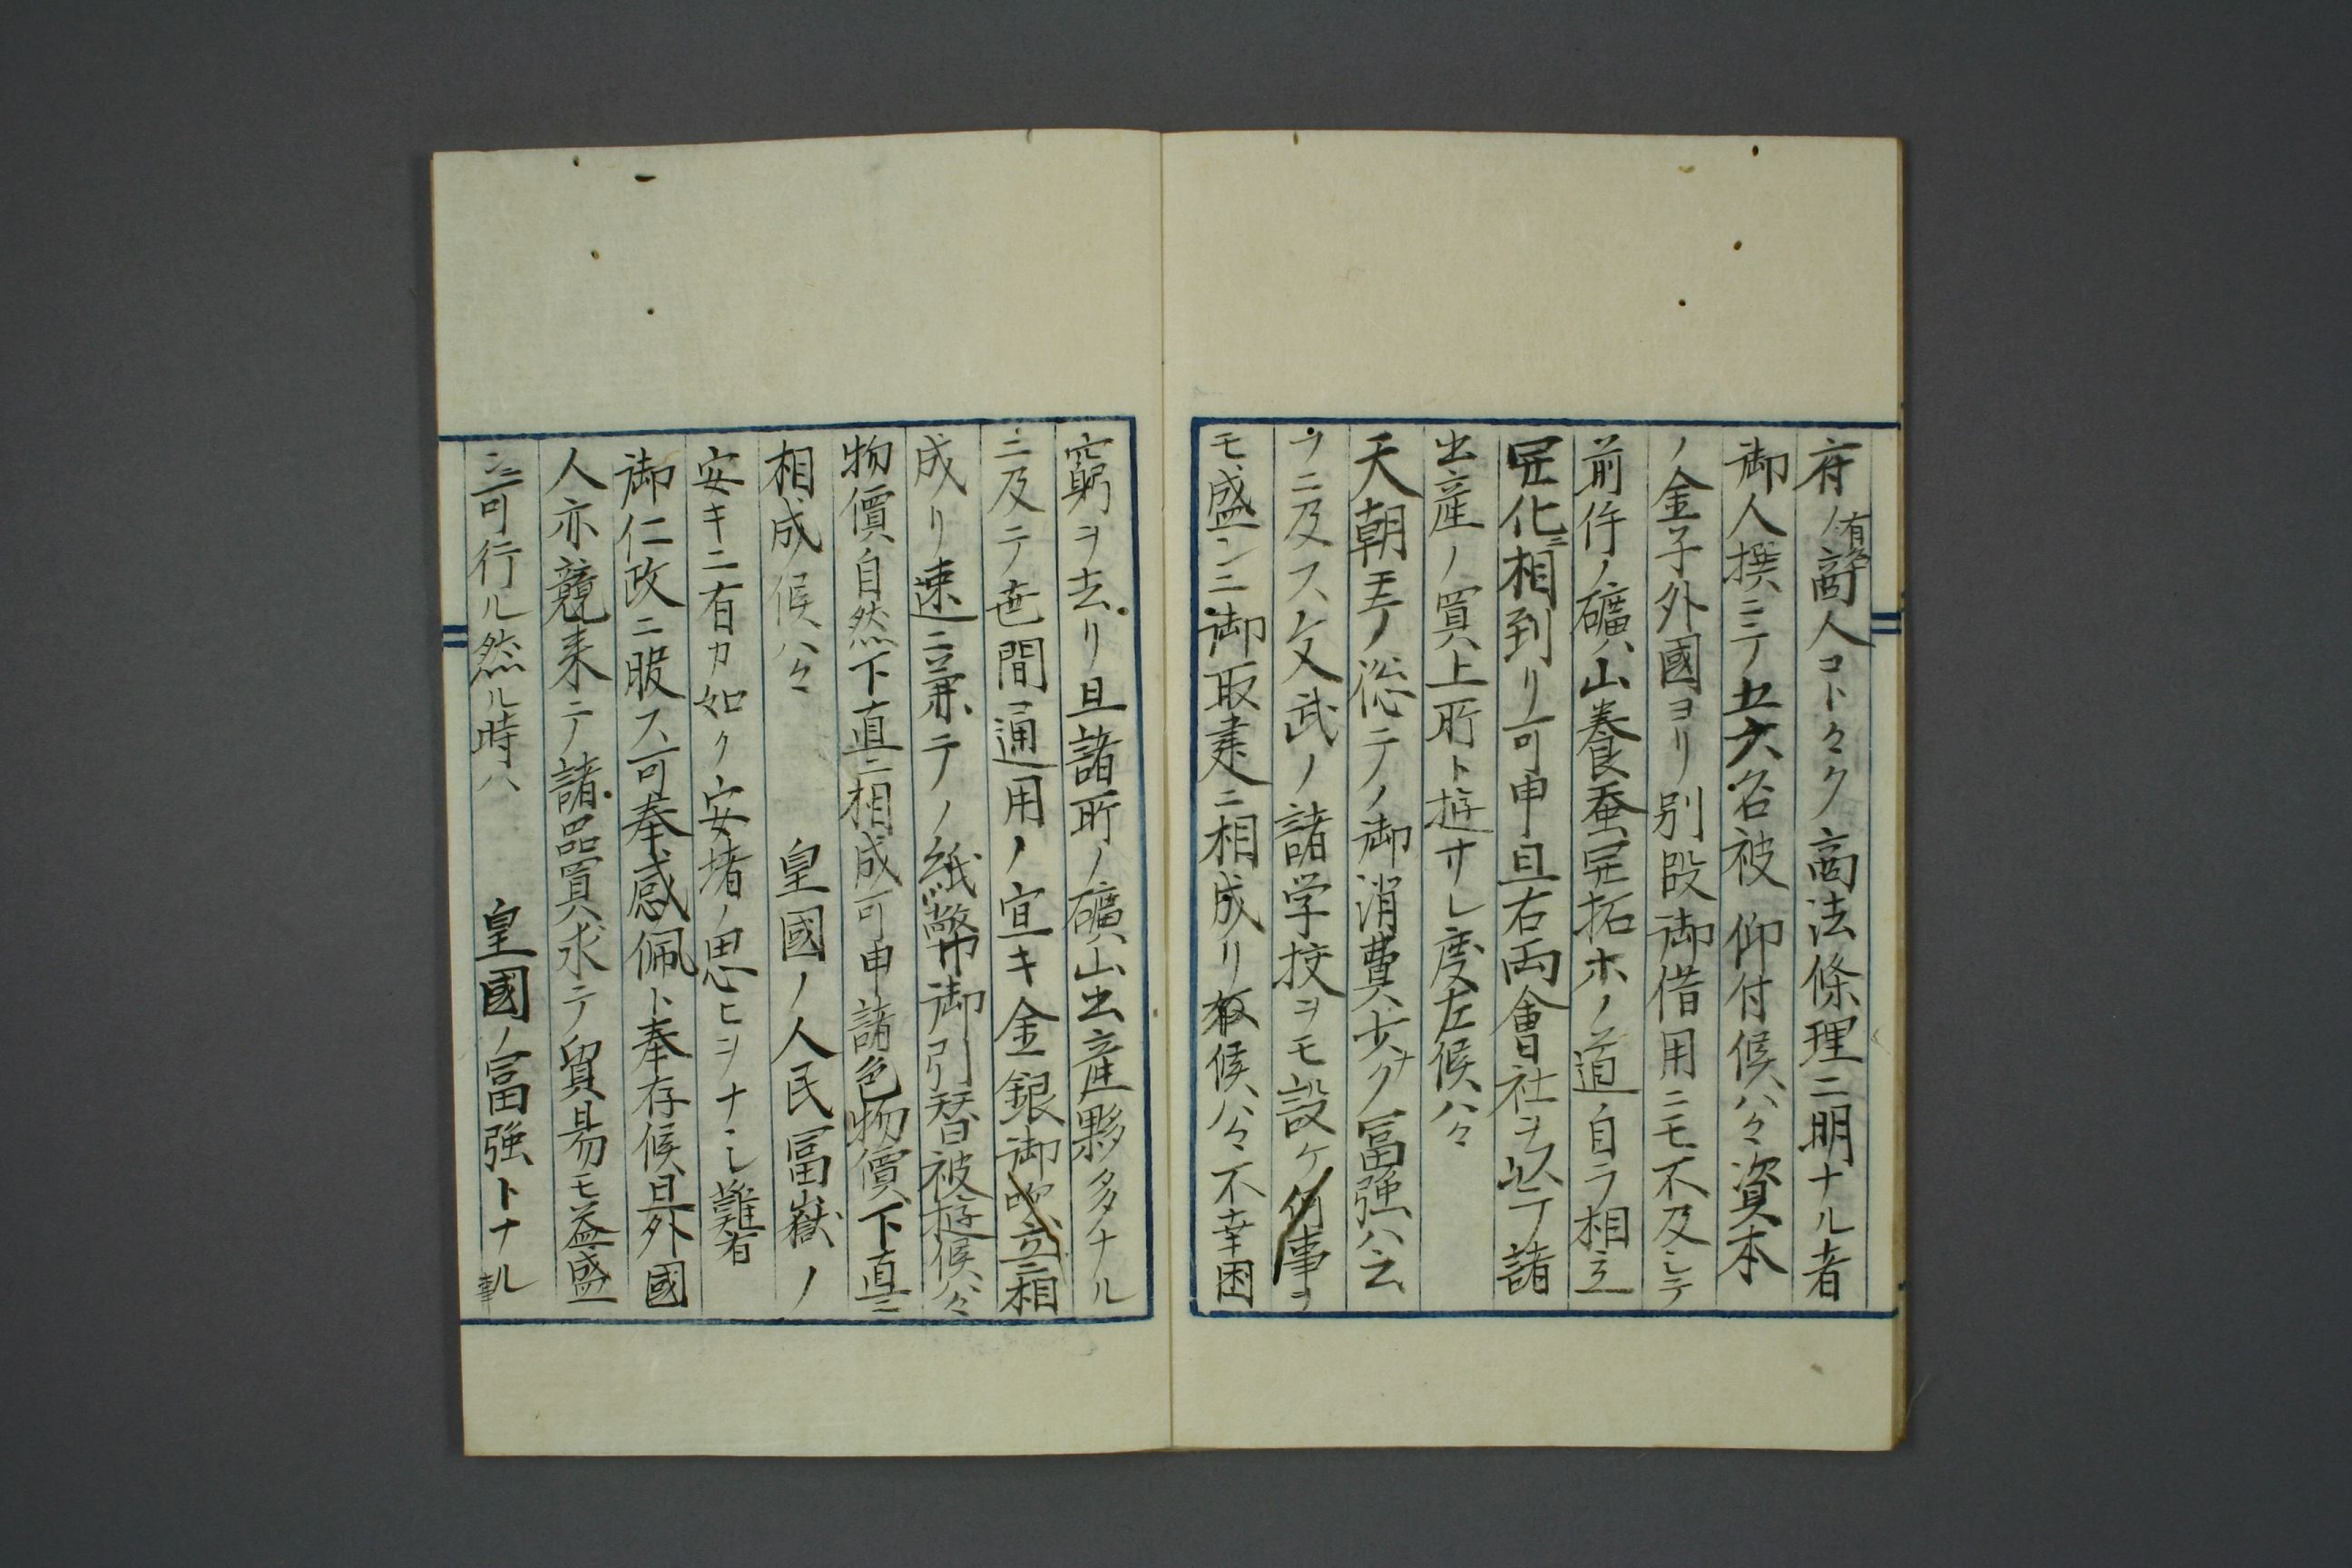 府ノ有名商人コトクク商法條理ニ明ナル者
御人撰ニテ五六名被 仰付候ハヽ資本
ノ金子外國ヨリ別段御借用ニモ不及シテ
前件ノ礦山養蚕開拓ホノ道自ラ相立
開化ニ相到リ可申且右両會社ヲ以テ諸
出産ノ買上所ト遊サレ度左候ハヽ
天朝ノ総テノ御消費少ナク冨強ハ云
フニ及ス文武ノ諸学校ヲモ設ケ何事ヲ
モ盛ンニ御取建ニ相成リ候ハヽ不幸困
窮ヲ去リ且諸所ノ礦山出産夥多ナル
ニ及テ世間通用ノ宜キ金銀御吹立ニ相
成リ速ニ兼テノ紙幣御引替被遊候ハヽ
物價自然下直ニ相成可申諸色物價下直ニ
相成候ハヽ 皇國ノ人民冨嶽ノ
安キニ有カ如ク安堵ノ思ヒヲナシ難有
御仁政ニ服ス可奉感佩ト奉存候且外國
人亦競来テ諸品買求テ貿易モ益盛
ンニ可行ル然ル時ハ 皇國ノ冨強トナル